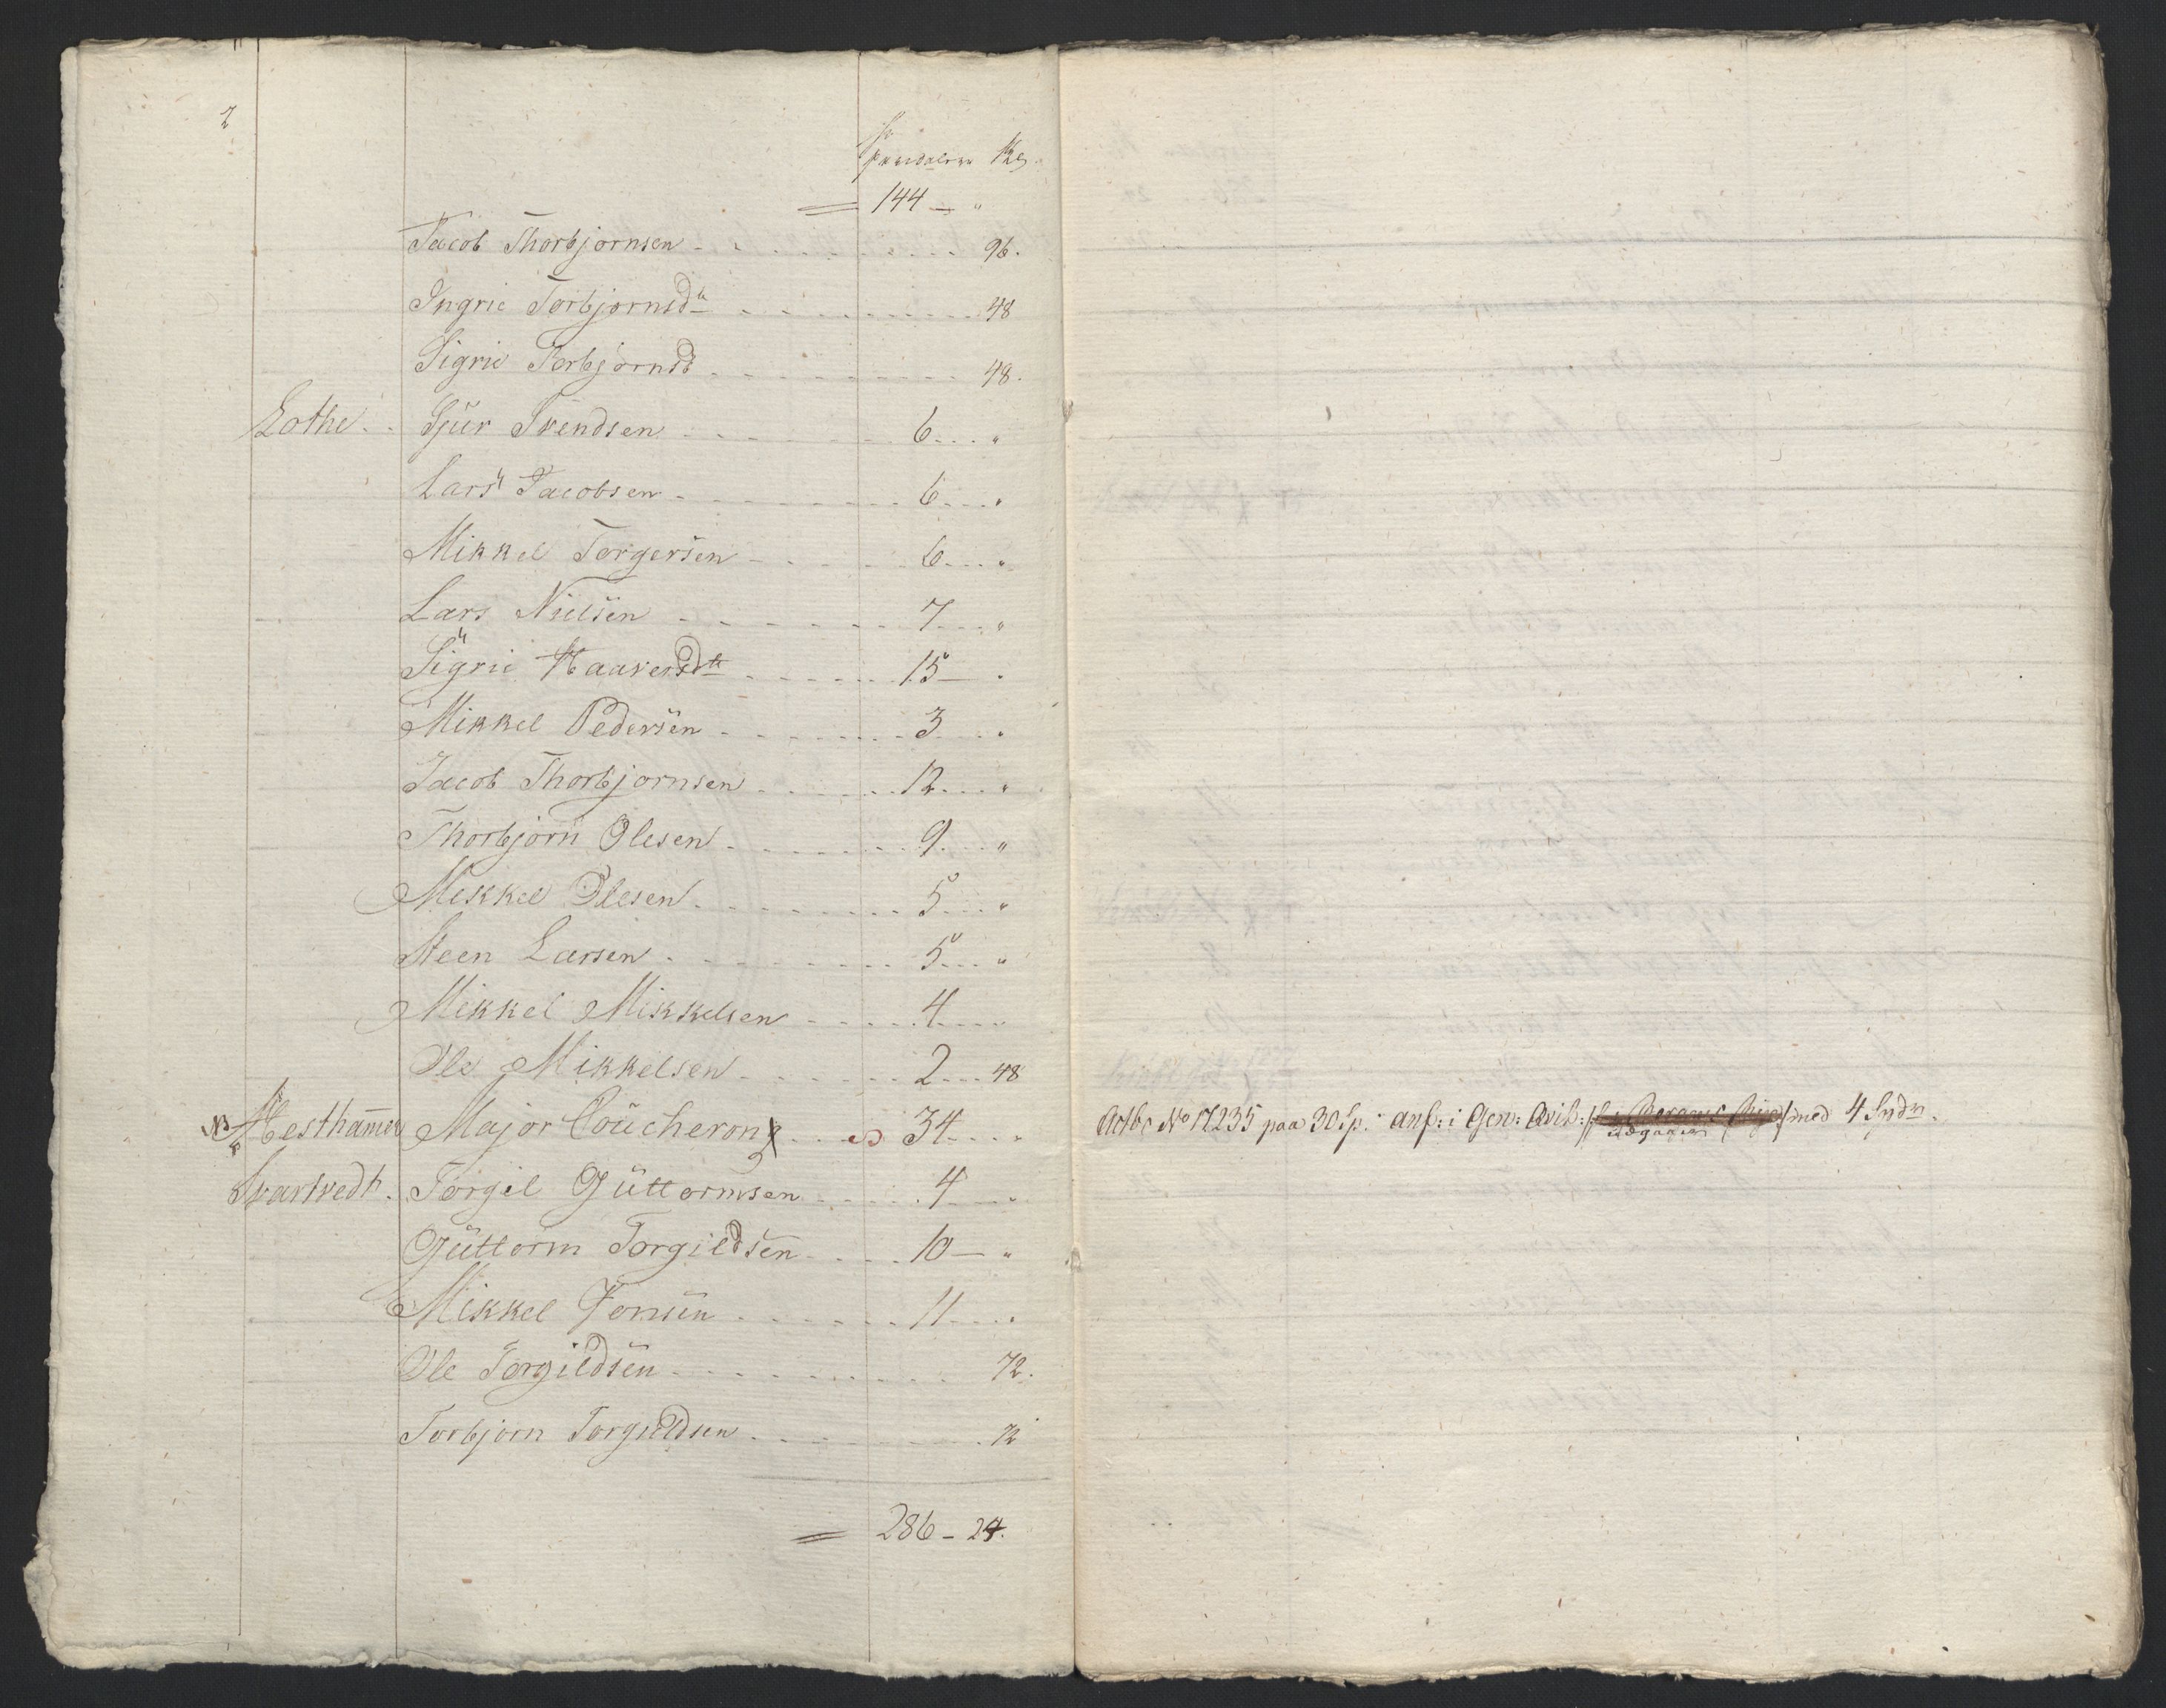 2
Speciedaler ß
144 — "
Jacob Thorbjørnsen - - - 96.
Ingrie Torbjørnsdtr - - - 48
Sigrie Torbjørnsdtr - - - 48.
Lothe. Sjur Svendsen - - - 6 - - "
Lars Jacobsen - - - 6 - - "
Mikkel Torgersen - - - 6 - - "
Lars Nielsen - - - 7 - - "
Sigrie Haaversdtr - - - 15 — "
Mikkel Pedersen - - - 3 - - "
Jacob Thorbjørnsen - - - 12 - - "
Thorbjørn Olesen - - - 9 - - "
Mikkel Olesen - - - 5 - - "
Steen Larsen - - - 5 - - "
Mikkel Mikkelsen - - - 4 - - "
Ole Mikkelsen - - - 2 - - 48
NB Hesthamer Major Coucheron - - - 34 - - "
Actbr No 17235 paa 30 Sp. anf: i Gen: med 4 Indr.
Svartvedt. Torgil Guttormsen - - - 4 - - "
Guttorm Torgildsen - - - 10 — "
Mikkel Jonsen - - - 11 - - "
Ole Torgildsen - - - 72.
Torbjørn Torgildsen - - - 72
286 - 24.